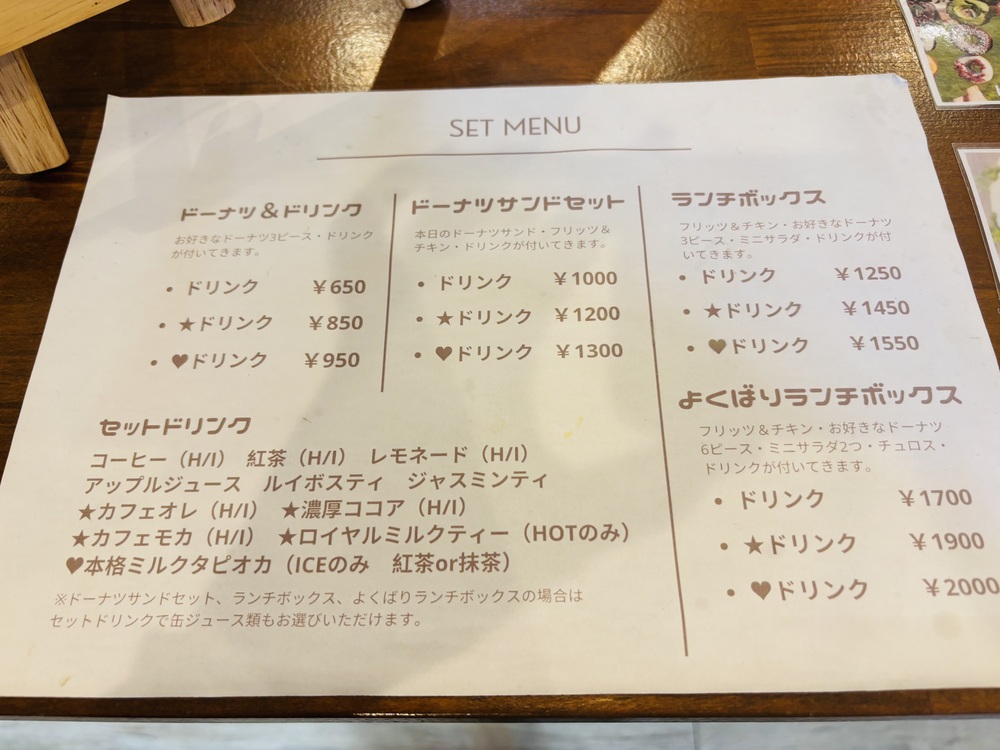 SET MENU
ドーナツ＆ドリンク
お好きなドーナツ3ピース・ドリンク
が付いてきます。
• ドリンク ￥650
• ★ドリンク ￥850
• ♥ドリンク ￥950
ドーナツサンドセット
本日のドーナツサンド・フリッツ＆
チキン・ドリンクが付いてきます。
• ドリンク ￥1000
• ★ドリンク ￥1200
• ♥ドリンク ￥1300
ランチボックス
フリッツ＆チキン・お好きなドーナツ
3ピース・ミニサラダ・ドリンクが付
いてきます。
• ドリンク ￥1250
• ★ドリンク ￥1450
• ♥ドリンク ￥1550
よくばりランチボックス
フリッツ＆チキン・お好きなドーナツ
6ピース・ミニサラダ2つ・チュロス・
ドリンクが付いてきます。
• ドリンク ￥1700
• ★ドリンク ￥1900
• ♥ドリンク ￥2000
セットドリンク
コーヒー（H/I） 紅茶（H/I） レモネード（H/I）
アップルジュース ルイボスティ ジャスミンティ
★カフェオレ（H/I） ★濃厚ココア（H/I）
★カフェモカ（H/I） ★ロイヤルミルクティー（HOTのみ）
♥本格ミルクタピオカ（ICEのみ 紅茶or抹茶）
※ドーナツサンドセット、ランチボックス、よくばりランチボックスの場合は
セットドリンクで缶ジュース類もお選びいただけます。